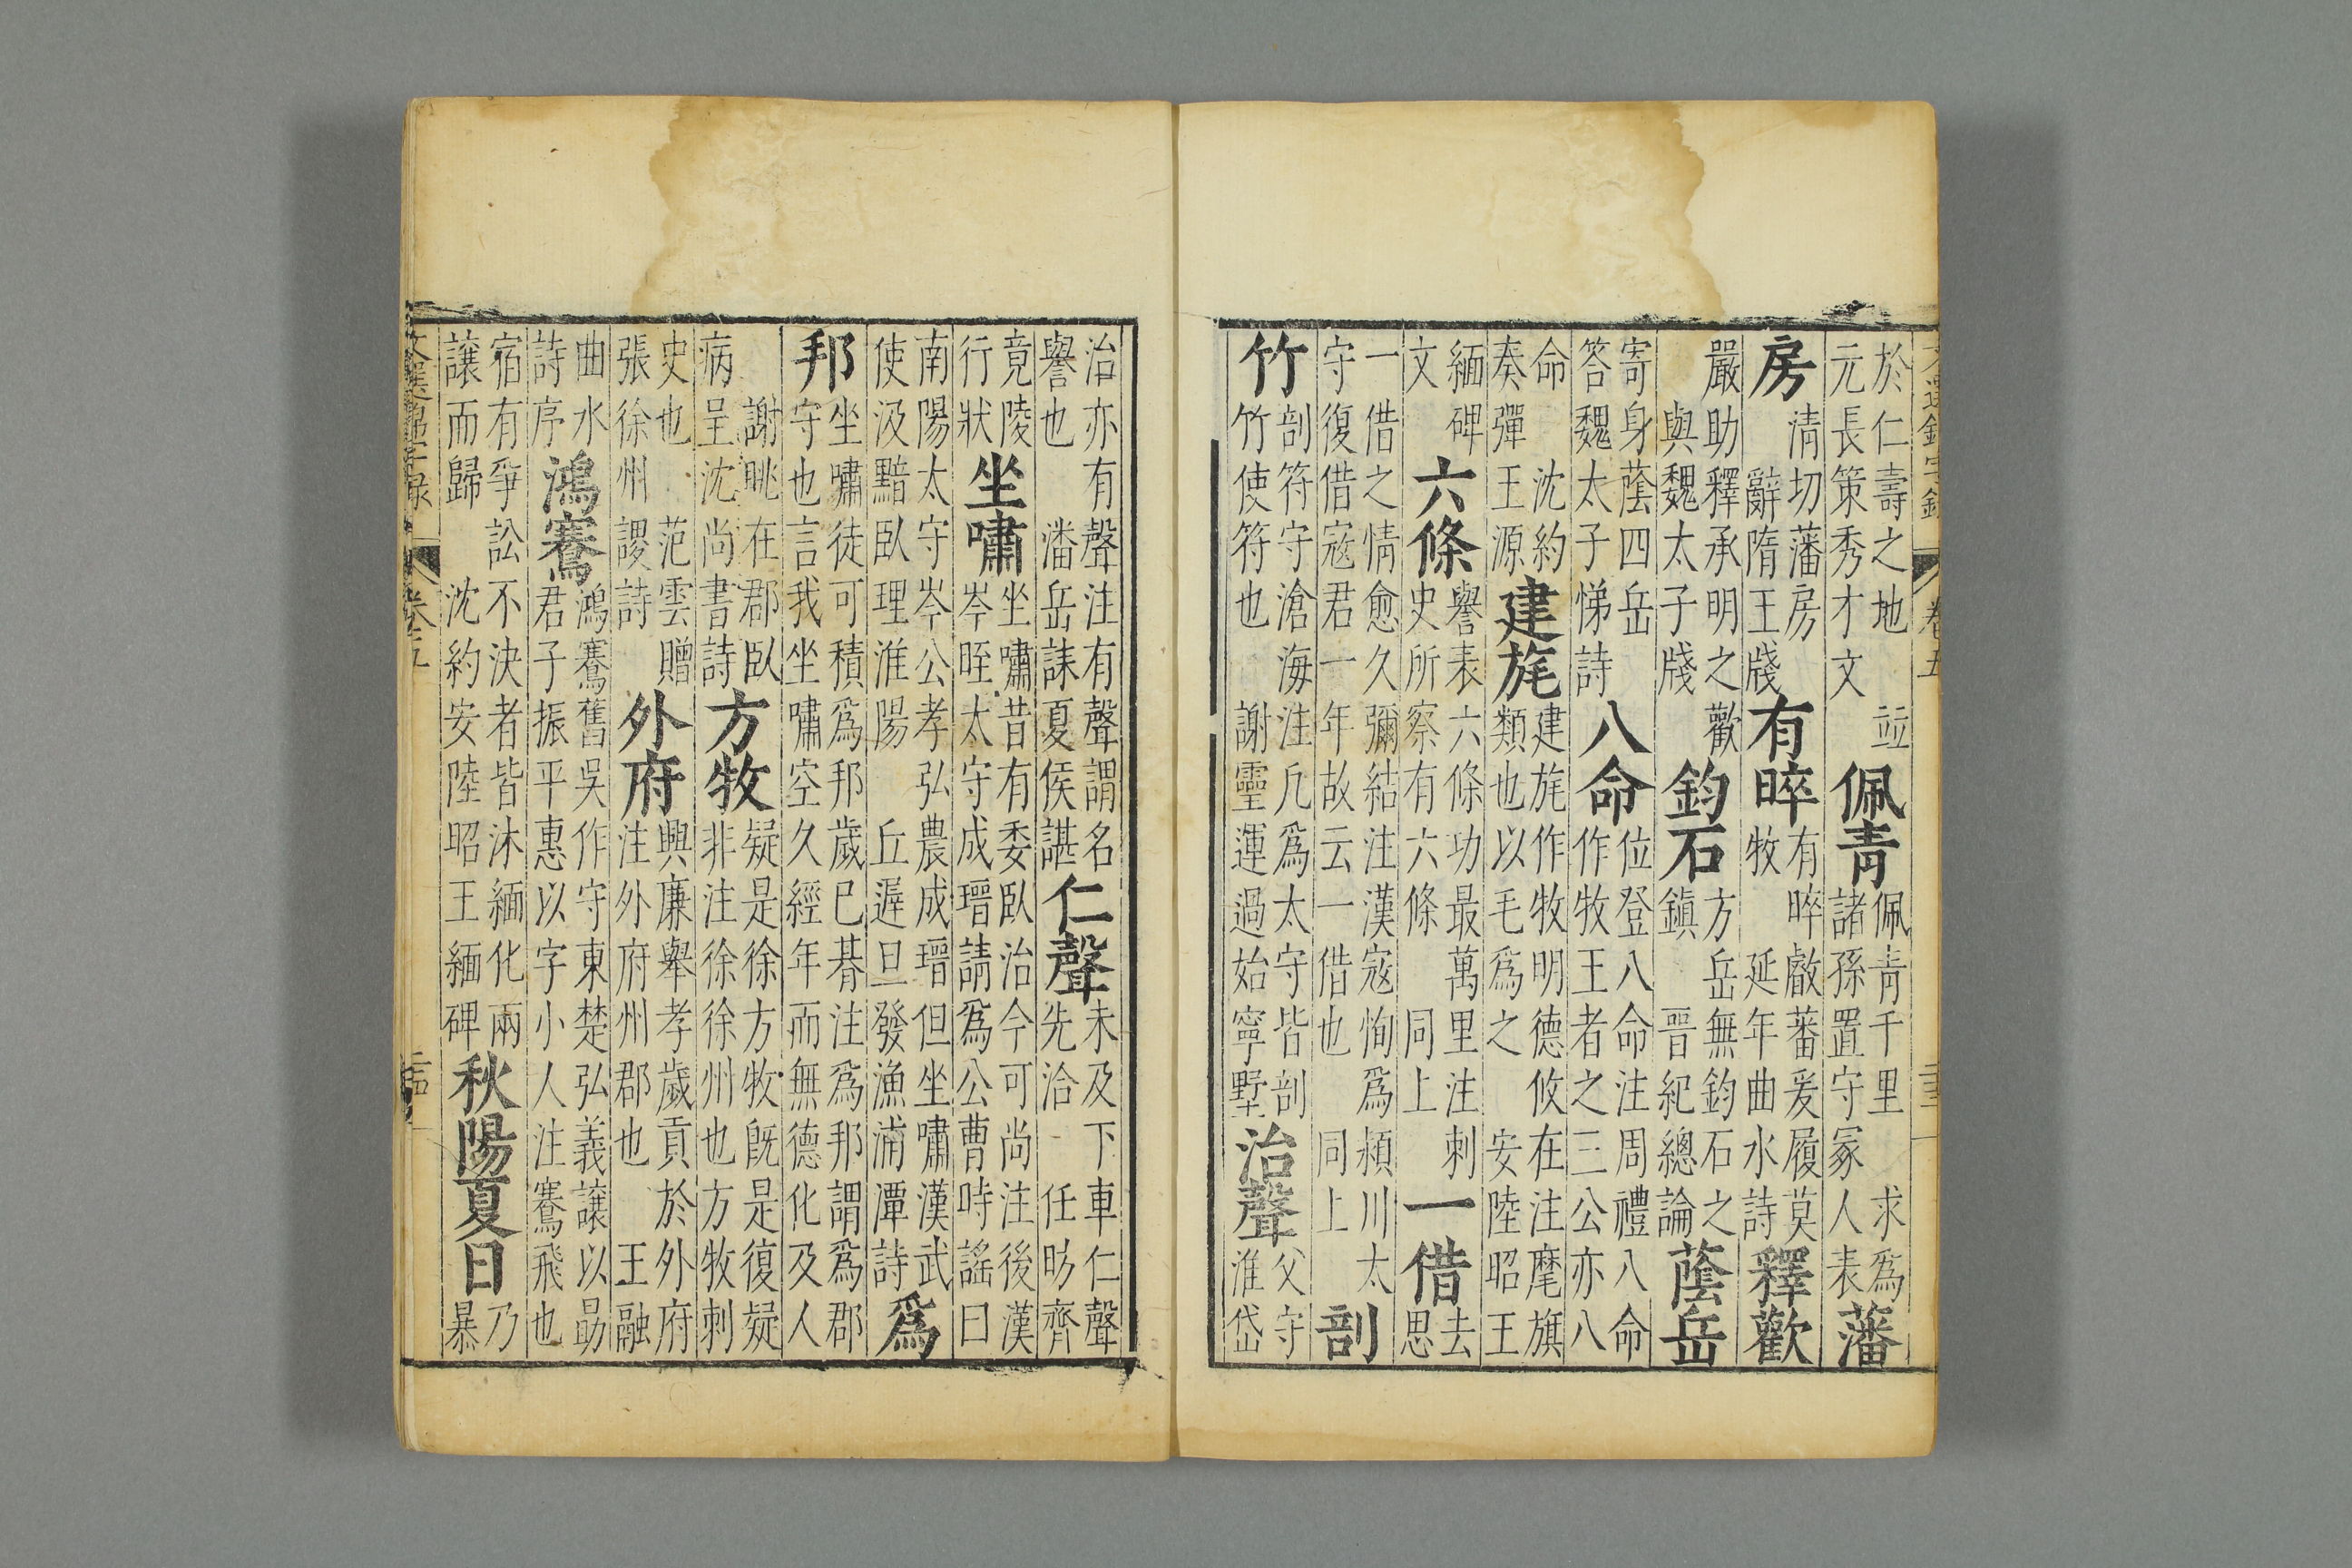 於仁壽之地　竝
元長策秀才文
佩青
佩青千里　求爲
諸孫置守冢人表
藩
房
清切藩房
辭隋王牋
有晬
有晬叡蕃爰履莫
牧　延年曲水詩
釋歡
嚴助釋承明之歡
與魏太子牋
鈞石
方岳無鈞石之
鎭　晉紀總論
蔭岳
寄身蔭四岳
答魏太子悌詩
八命
位登八命注周禮八命
作牧王者之三公亦八
命　沈約
奏彈王源
建旄
建旄作牧明德攸在注麾旗
類也以毛爲之　安陸昭王
緬碑
文
六條
譽表六條功最萬里注刺
史所察有六條　同上
一借
去
思
一借之情愈久彌結注漢寇恂爲潁川太
守復借寇君一年故云一借也　同上
剖
竹
剖符守滄海注凡爲太守皆剖
竹使符也　謝靈運過始寧墅
治聲
父守
淮岱
治亦有聲注有聲謂名
譽也　潘岳誄夏侯諶
仁聲
未及下車仁聲
先洽　任昉齊
竟陵
行狀
坐嘯
坐嘯昔有委臥治今可尚注後漢
岑晊太守成瑨請爲公曹時謡曰
南陽太守岑公孝弘農成瑨但坐嘯漢武
使汲黯臥理淮陽　丘遲旦發漁浦潭詩
爲
邦
坐嘯徒可積爲邦歲已朞注爲邦謂爲郡
守也言我坐嘯空久經年而無德化及人
謝眺在郡臥
病呈沈尚書詩
方牧
疑是徐方牧旣是復疑
非注徐徐州也方牧刺
史也　范雲贈
張徐州謖詩
外府
興廉舉孝歲貢於外府
注外府州郡也　王融
曲水
詩序
鴻鶱
鴻鶱舊吳作守東楚弘義讓以勗
君子振平惠以字小人注鶱飛也
宿有爭訟不決者皆沐緬化兩
讓而歸　沈約安陸昭王緬碑
秋陽夏日
乃
暴
卷五
卷五